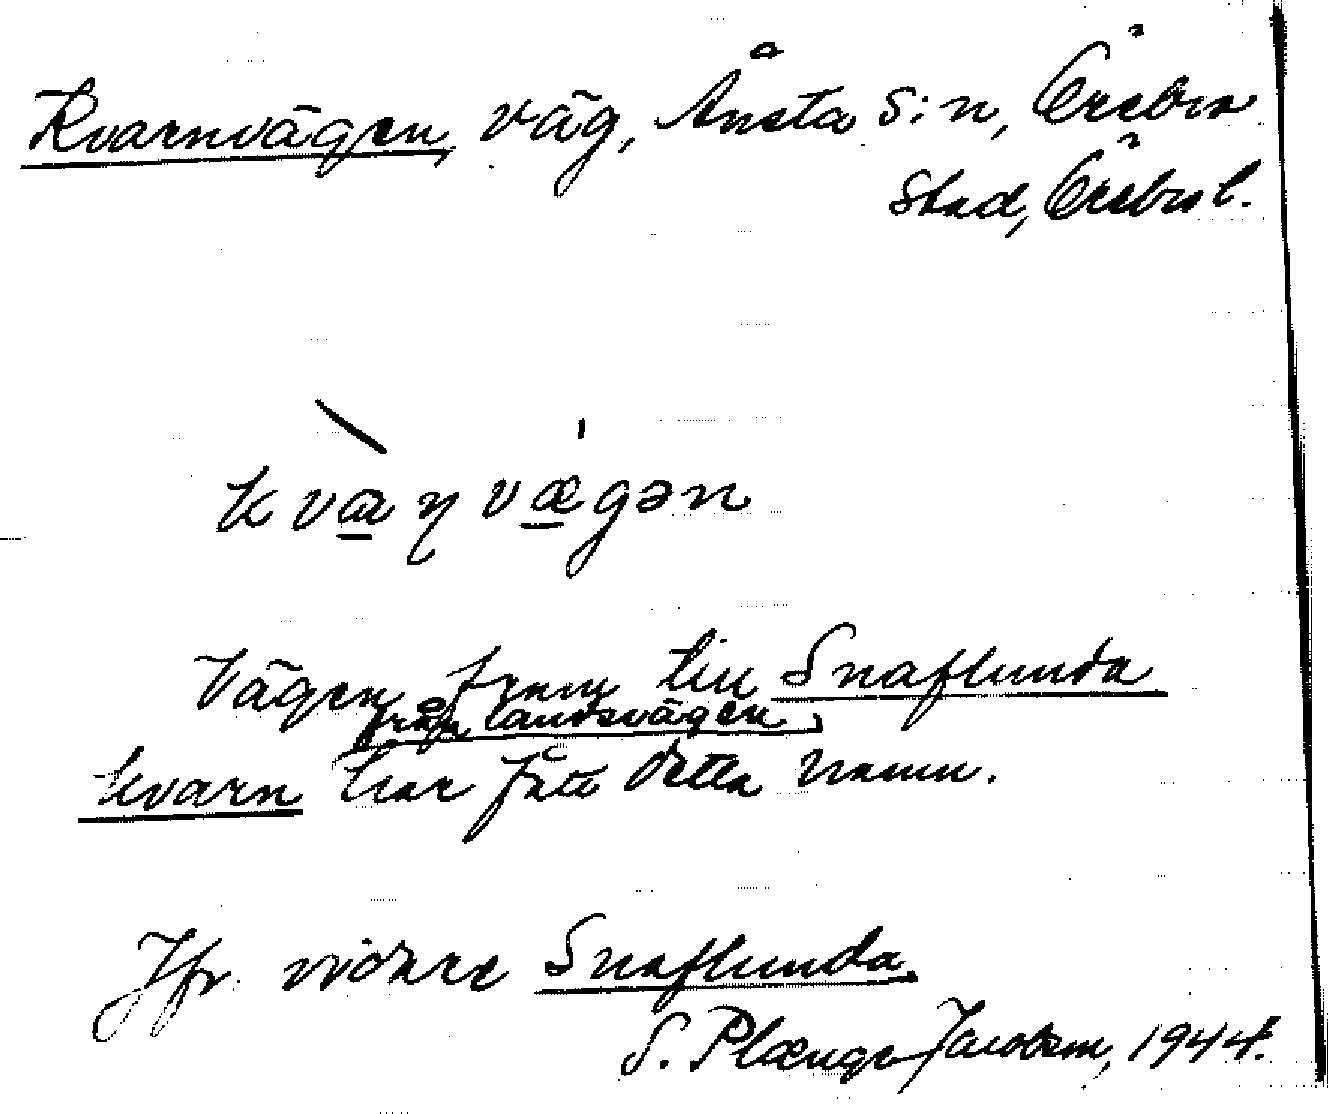 Kvarnvägen, väg, Ånsta s:n, Örebro
stad, Örebro l.
kvæɳvægən
Vägen fram till Snaflunda
från landsvägen
kvarn har fått detta namn.
Jfr. vidare Snaflunda.
S. Plænge Jacobson, 1944.